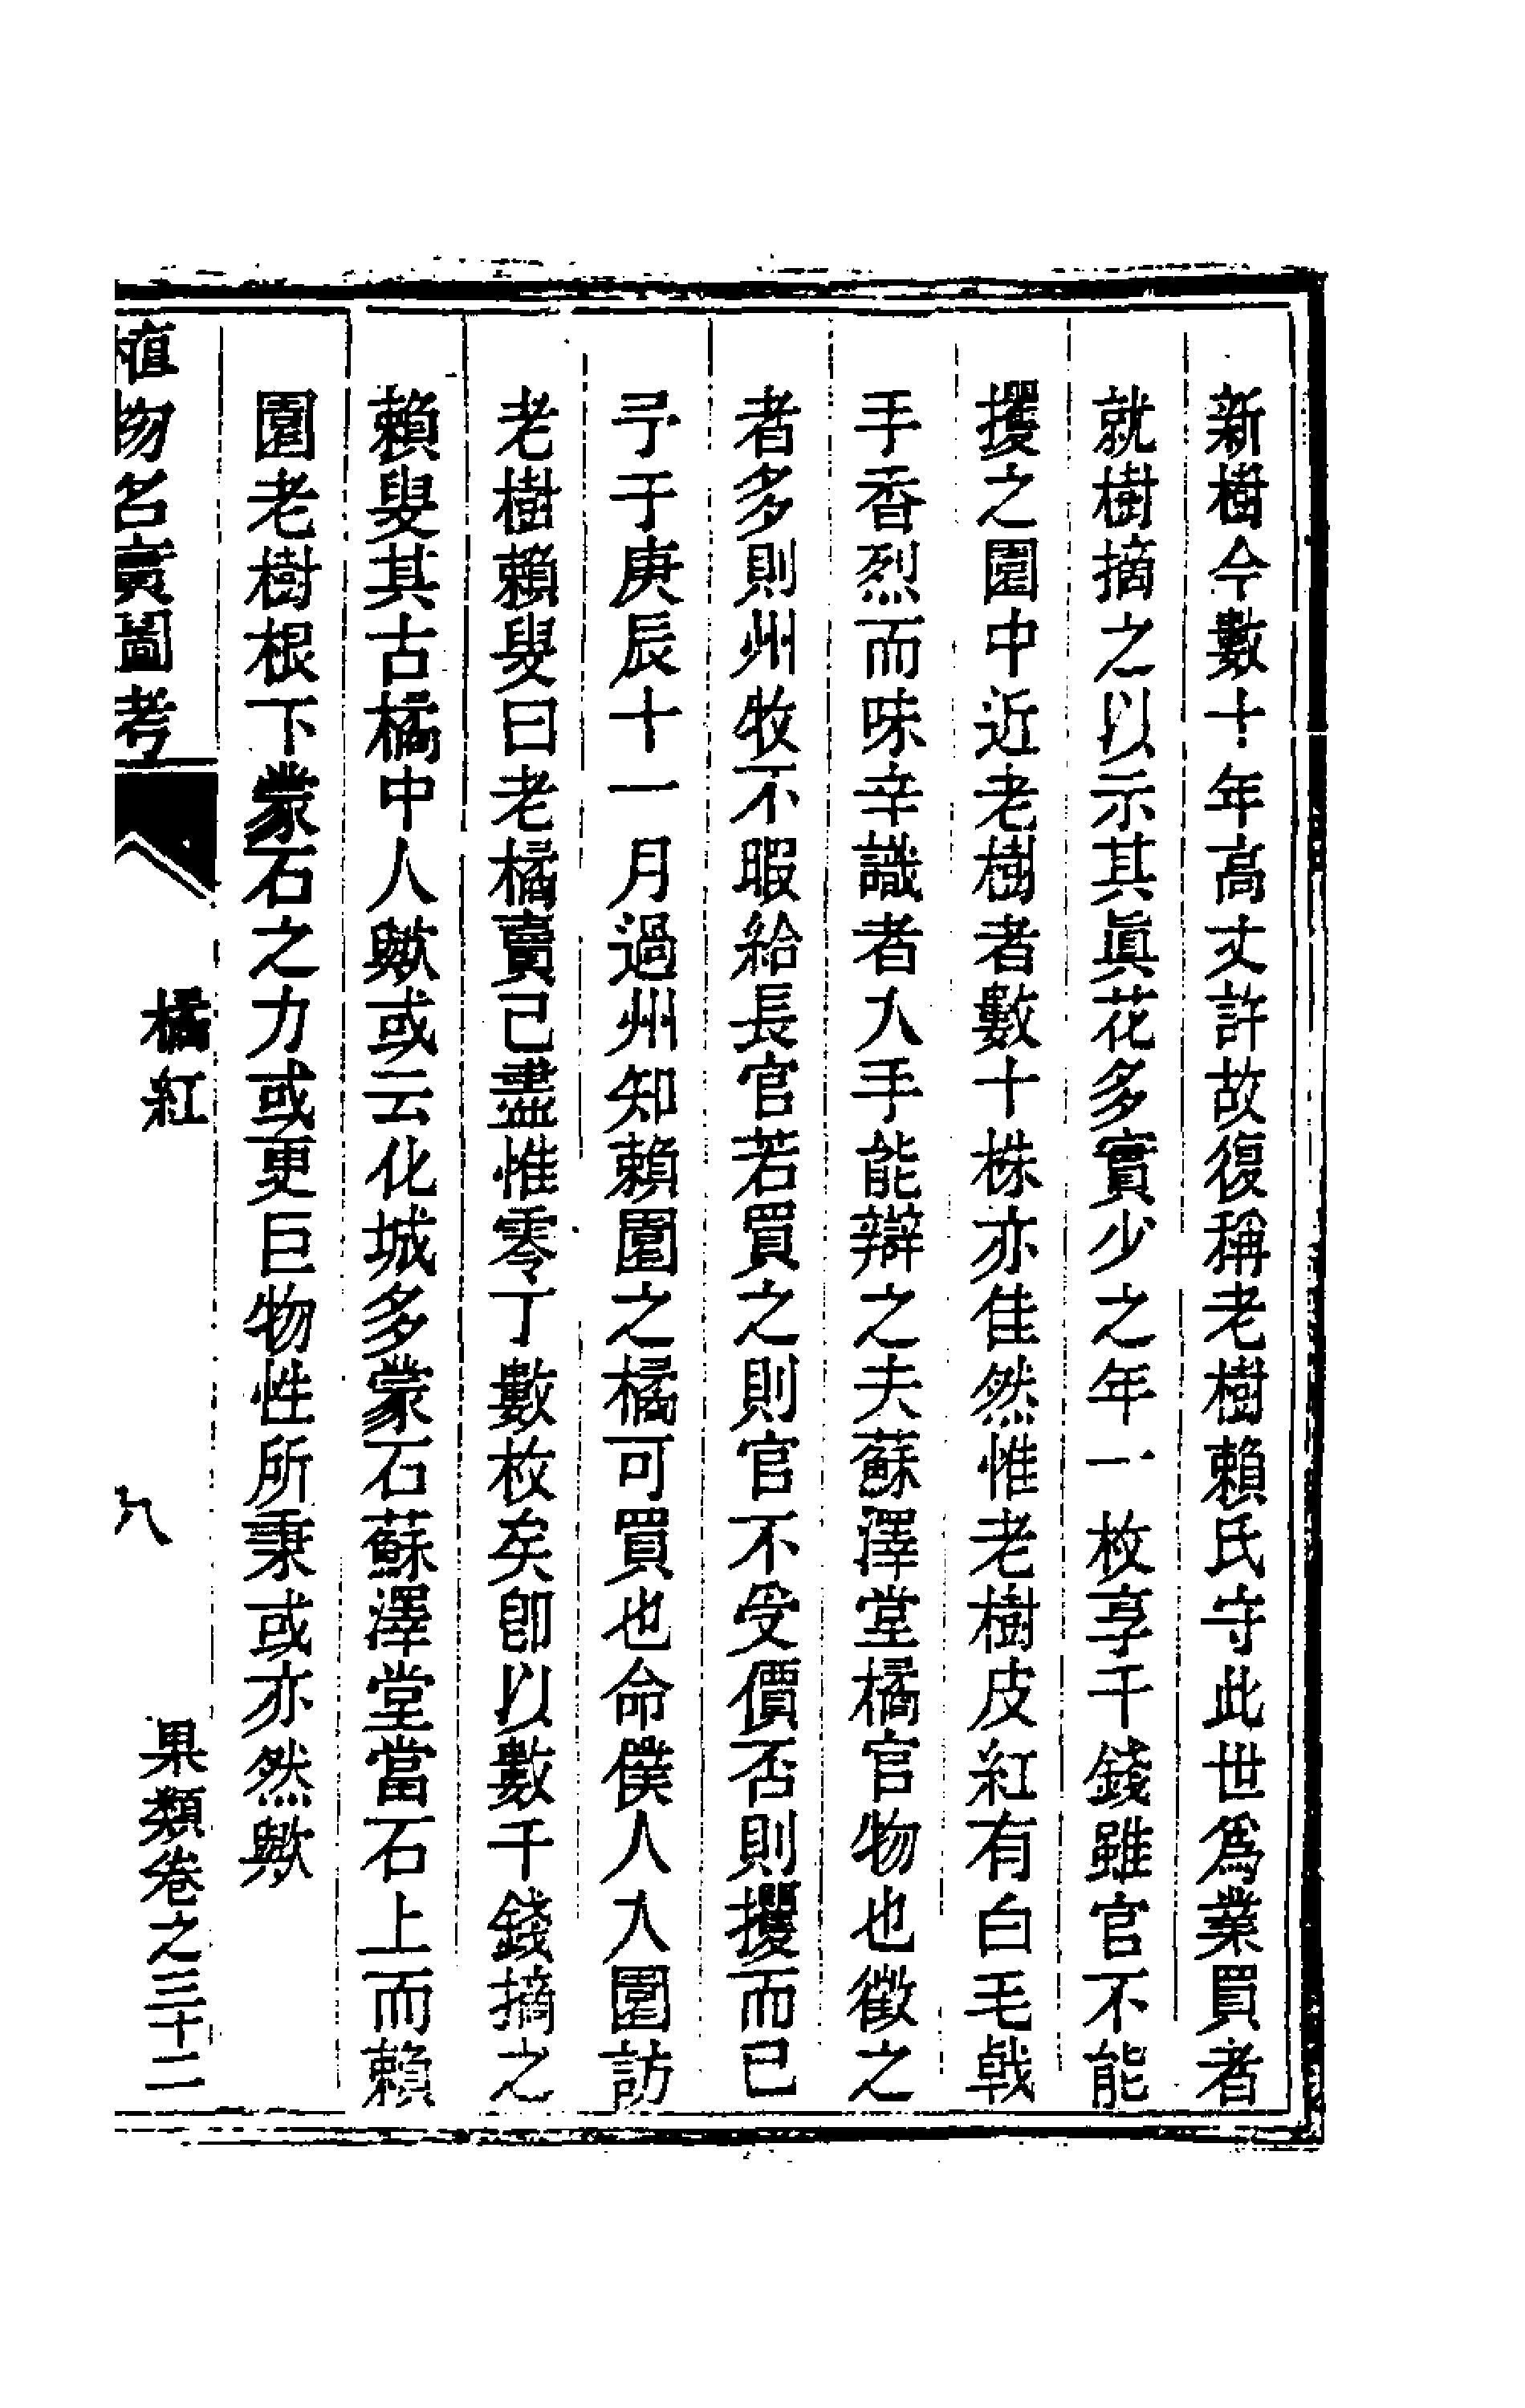 新樹今數十年高丈許故復稱老樹賴氏守此世爲業買者
就樹摘之以示其眞花多實少之年一枚享千錢雖官不能
攫之園中近老樹者數十株亦佳然惟老樹皮紅有白毛戟
手香烈而味辛識者入手能辯之夫蘇澤堂橘官物也徵之
者多則州牧不暇給長官若買之則官不受價否則攫而已
予于庚辰十一月過州知賴園之橘可買也命僕人入園訪
老樹賴叟曰老橘賣已盡惟零丁數枚矣卽以數千錢摘之
賴叟其古橘中人歟或云化城多蒙石蘇澤堂當石上而賴
園老樹根下蒙石之力或更巨物性所秉或亦然歟
植物名實圖考
橘紅
八
果類卷之三十二